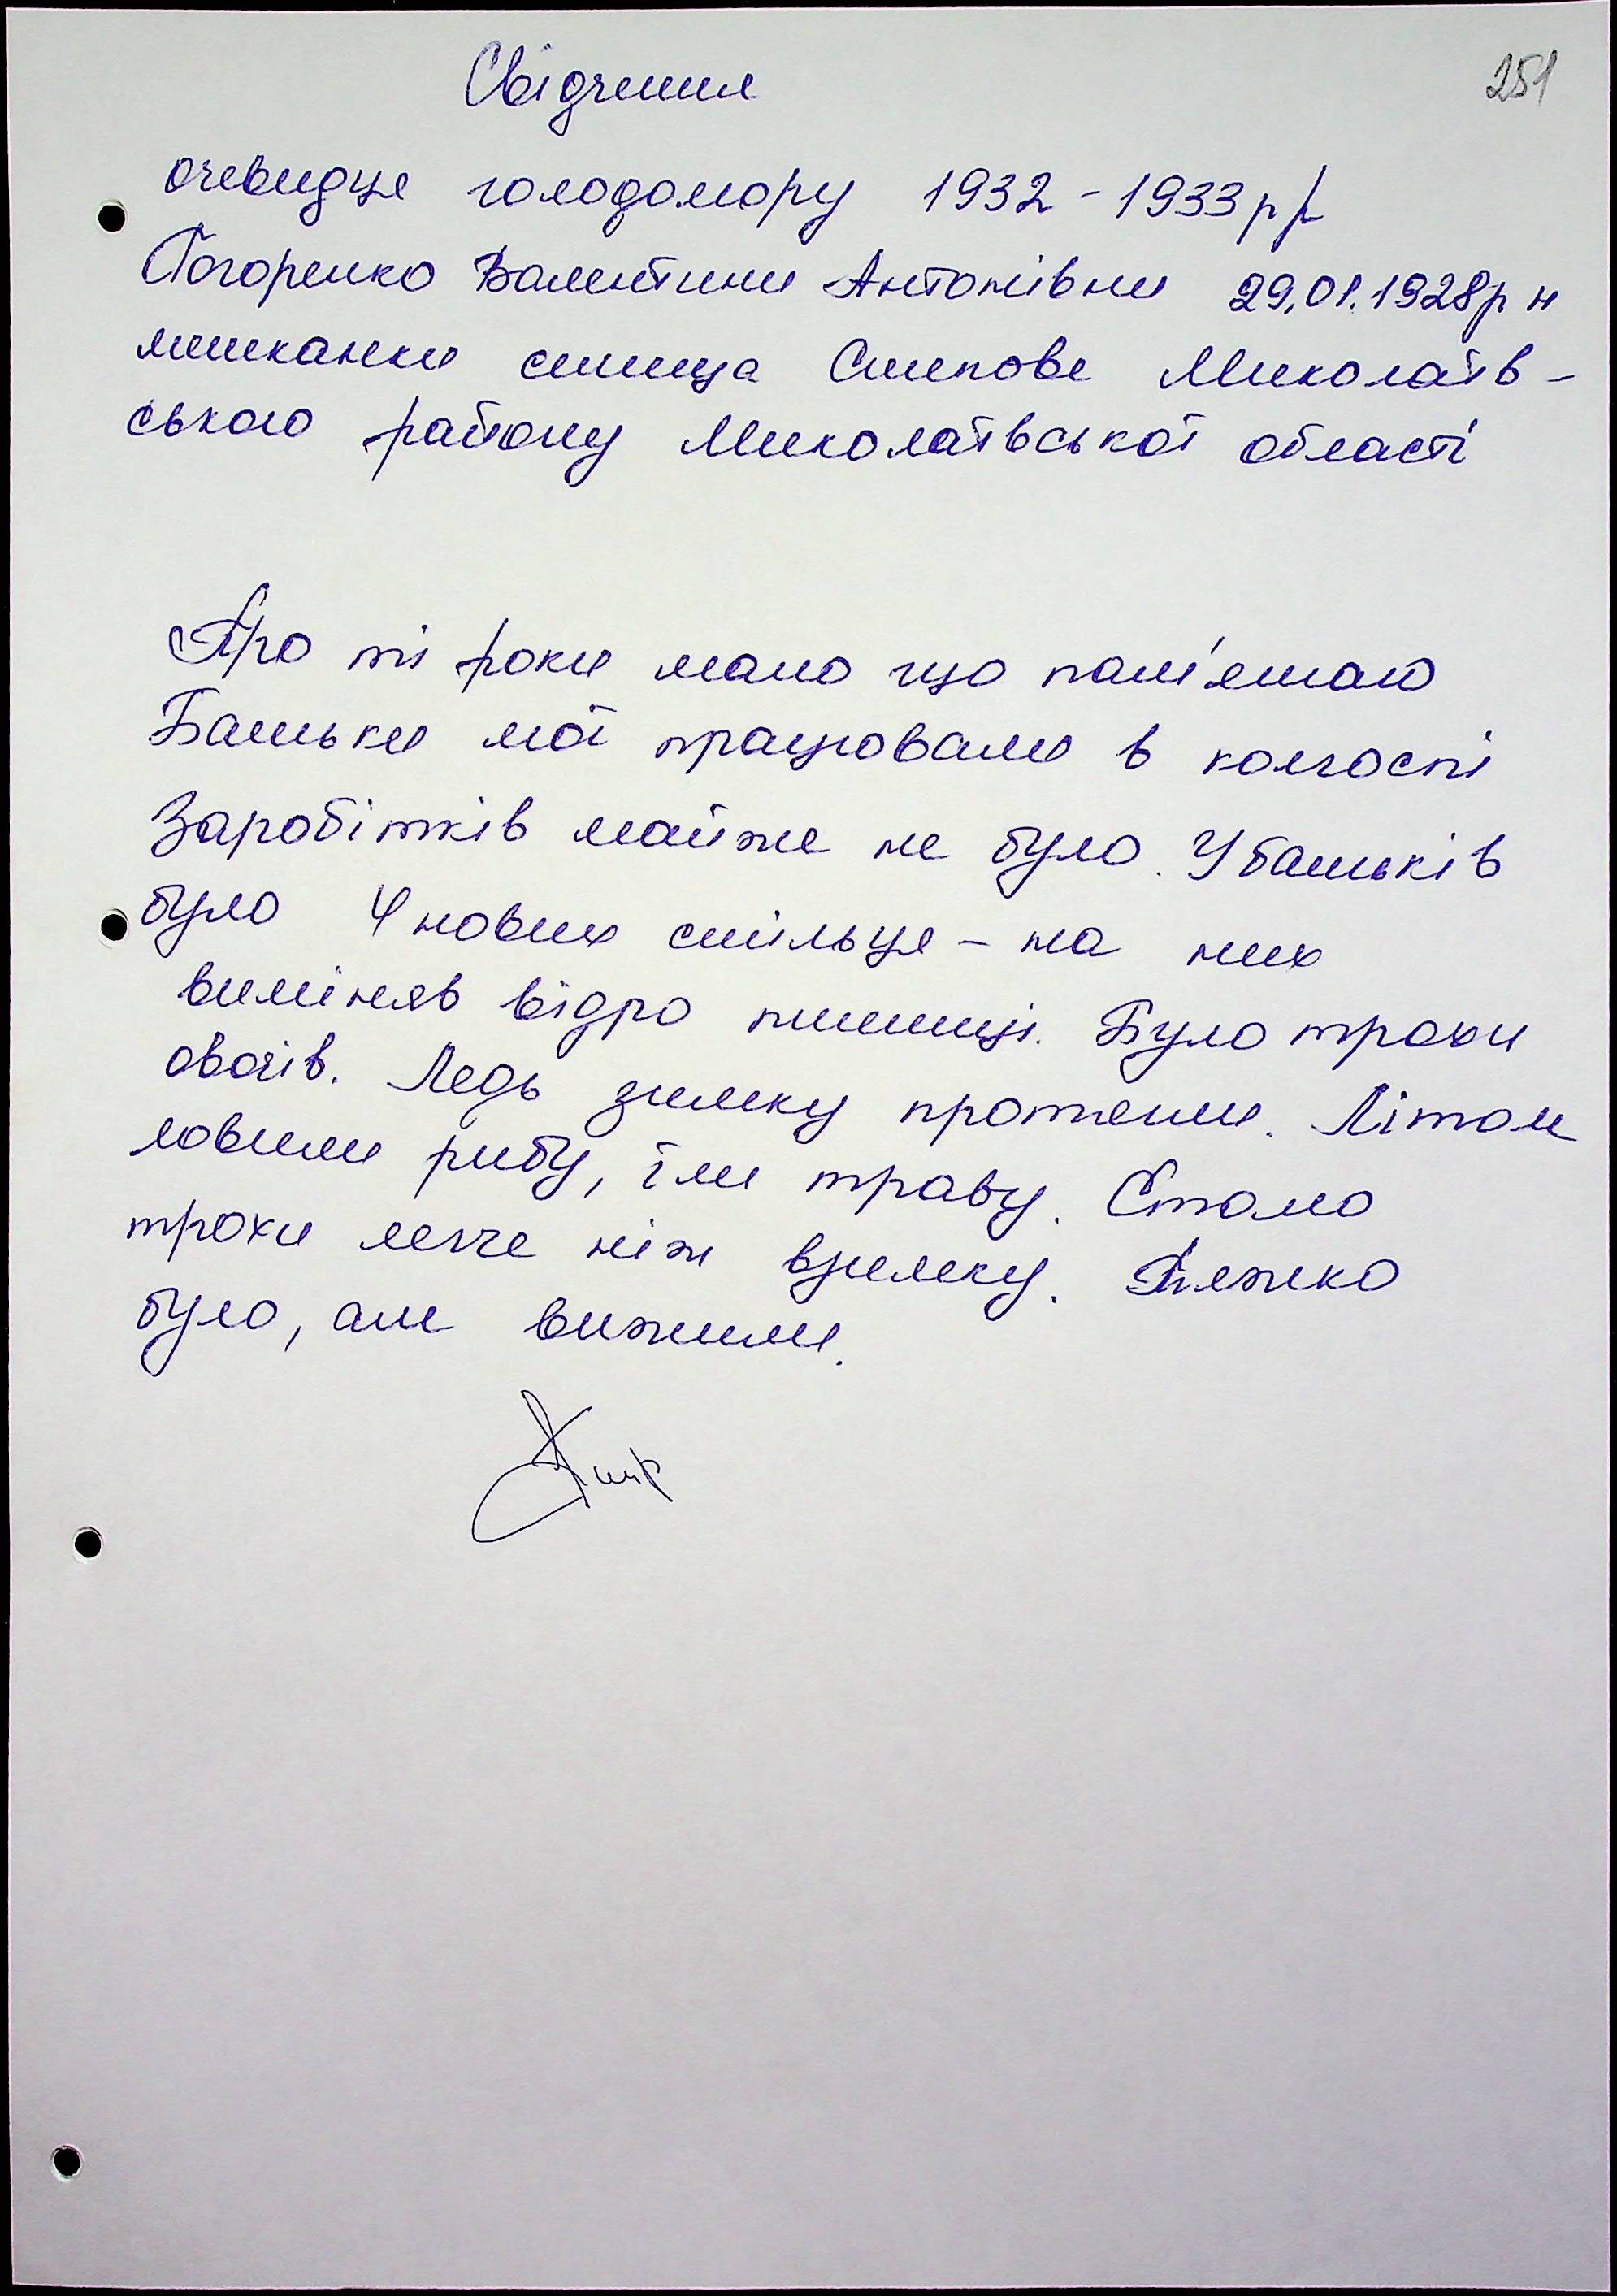 251
Свідчення
очевидця голодомору 1932 - 1933 рр
Погоренко Валентини Антонівни 29.01.1928р н
мешканки селища Степове Миколаїв -
ського району Миколаївської області
Про ті роки мало що пам'ятаю
Батьки мої працювали в колгоспі
Заробітків майже не було. У батьків
було 4 нових стільця - на них
виміняв відро пшениці. Було трохи
овочів. Ледь зимку протягли. Літом
ловили рибу, їли траву. Стало
трохи легче ніж взимку. Тяжко
було, але вижили.